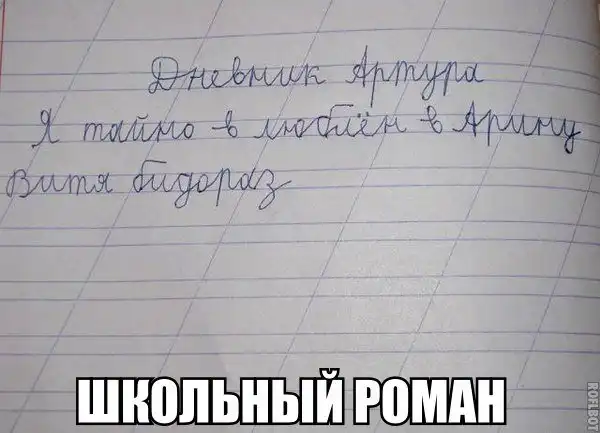 Дневник Артура
Я тайно в люблён в Арину
Витя бидораз
ШКОЛЬНЫЙ РОМАН
ROFLBOT